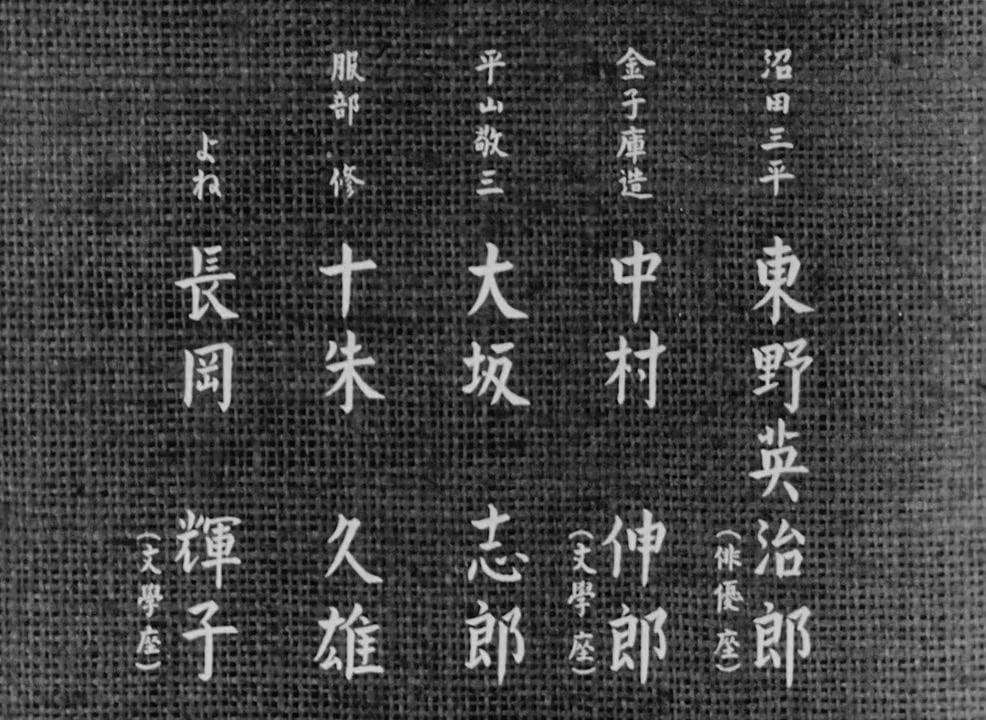 沼田三平 東野英治郎(俳優座)
金子庫造 中村伸郎(文學座)
平山敬三 大坂志郎
服部修 十朱久雄
よね 長岡輝子(文學座)